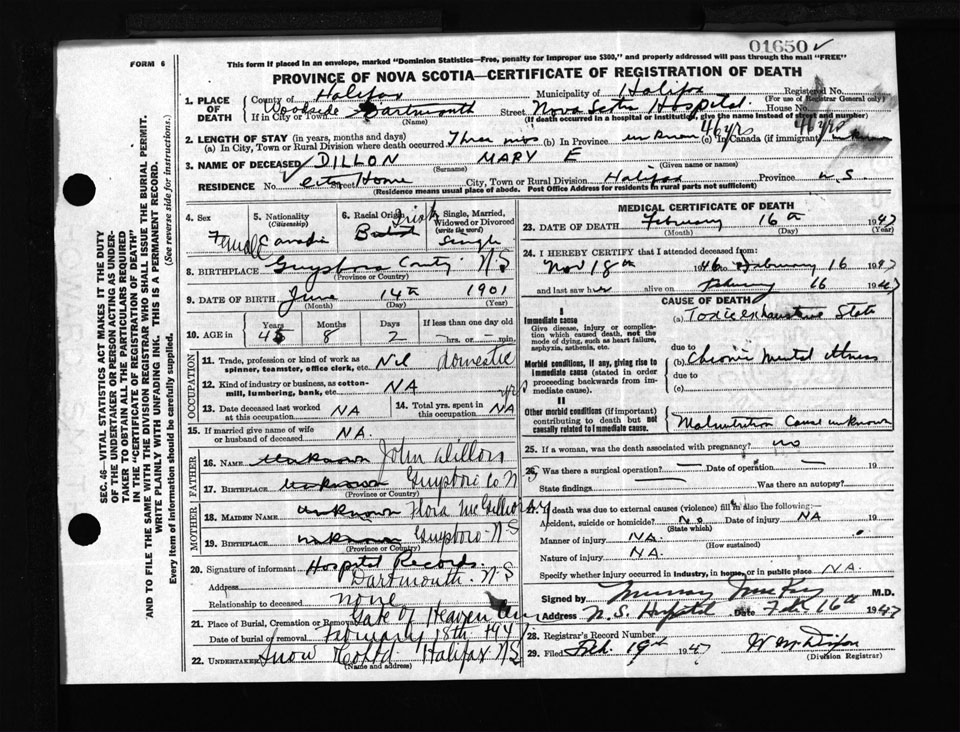 01650 ✓
FORM 6
This form if placed in an envelope, marked "Dominion Statistics—Free, penalty for improper use $300," and properly addressed will pass through the mail "FREE"
PROVINCE OF NOVA SCOTIA—CERTIFICATE OF REGISTRATION OF DEATH
SEC. 46—VITAL STATISTICS ACT MAKES IT THE DUTY
OF THE UNDERTAKER OR PERSON ACTING AS UNDER-
TAKER TO OBTAIN ALL THE PARTICULARS REQUIRED
IN THE "CERTIFICATE OF REGISTRATION OF DEATH"
AND TO FILE THE SAME WITH THE DIVISION REGISTRAR WHO SHALL ISSUE THE BURIAL PERMIT.
WRITE PLAINLY WITH UNFADING INK. THIS IS A PERMANENT RECORD.
Every item of information should be carefully supplied. (See reverse side for instructions.)
1. PLACE OF DEATH County of Halifax Municipality of Halifax Registered No.
(For use of Registrar General only)
If in City or Town Woodside Dartmouth Street Nova Scotia Hospital House No.
(Name) (If death occurred in a hospital or institution, give the name instead of street and number)
2. LENGTH OF STAY (in years, months and days)
(a) In City, Town or Rural Division where death occurred Three mos (b) In Province unknown 46 yrs (c) In Canada (if immigrant) 46 yrs unknown
3. NAME OF DECEASED DILLON MARY E
(Surname) (Given name or names)
RESIDENCE No. Street City Home City, Town or Rural Division Halifax Province N.S.
(Residence means usual place of abode. Post Office Address for residents in rural parts not sufficient)
4. Sex 5. Nationality (Citizenship) 6. Racial Origin 7. Single, Married, Widowed or Divorced (write the word)
Female Canadian Irish Single
8. BIRTHPLACE Guysboro County N.S
(Province or Country)
9. DATE OF BIRTH June 14th 1901
(Month) (Day) (Year)
10. AGE in Years Months Days If less than one day old
45 8 2 hrs. or min.
OCCUPATION
11. Trade, profession or kind of work as spinner, teamster, office clerk, etc. Nil domestic
12. Kind of industry or business, as cotton-mill, lumbering, bank, etc. NA
13. Date deceased last worked at this occupation NA 14. Total yrs. spent in this occupation NA yrs
15. If married give name of wife or husband of deceased NA.
FATHER
16. NAME unknown John Dillon
17. BIRTHPLACE unknown Guysboro Co N
(Province or Country)
MOTHER
18. MAIDEN NAME unknown Flora McGillivray
19. BIRTHPLACE unknown Guysboro N S
(Province or Country)
20. Signature of informant Hospital Records.
Address Dartmouth. N S
Relationship to deceased none
21. Place of Burial, Cremation or Removal Gate of Heaven Cem
Date of burial or removal February 18th 1947
22. UNDERTAKER Snow Co Ltd Halifax N S
(Name and address)
MEDICAL CERTIFICATE OF DEATH
23. DATE OF DEATH February 16th 1947
(Month) (Day) (Year)
24. I HEREBY CERTIFY that I attended deceased from:
Nov 18th 1946 to February 16 1947
and last saw her alive on February 16 1947
CAUSE OF DEATH
I
Immediate cause (a) Toxic exhaustive State
Give disease, injury or complication which caused death, not the mode of dying, such as heart failure, asphyxia, asthenia, etc.
due to
Morbid conditions, if any, giving rise to immediate cause (stated in order proceeding backwards from immediate cause). (b) Chronic Mental illness
due to
(c)
II
Other morbid conditions (if important) contributing to death but not causally related to immediate cause. Malnutrition Cause unknown
25. If a woman, was the death associated with pregnancy? no
26. Was there a surgical operation? — Date of operation — 19
State findings — Was there an autopsy?
27. If death was due to external causes (violence) fill in also the following:—
Accident, suicide or homicide? No Date of injury NA 19
(State which)
Manner of injury NA.
(How sustained)
Nature of injury NA.
Specify whether injury occurred in industry, in home, or in public place NA.
Signed by Murray M.D.
Address N.S. Hospital Date Feb 16th 1947
28. Registrar's Record Number
29. Filed Feb. 19th 1947
(Division Registrar)